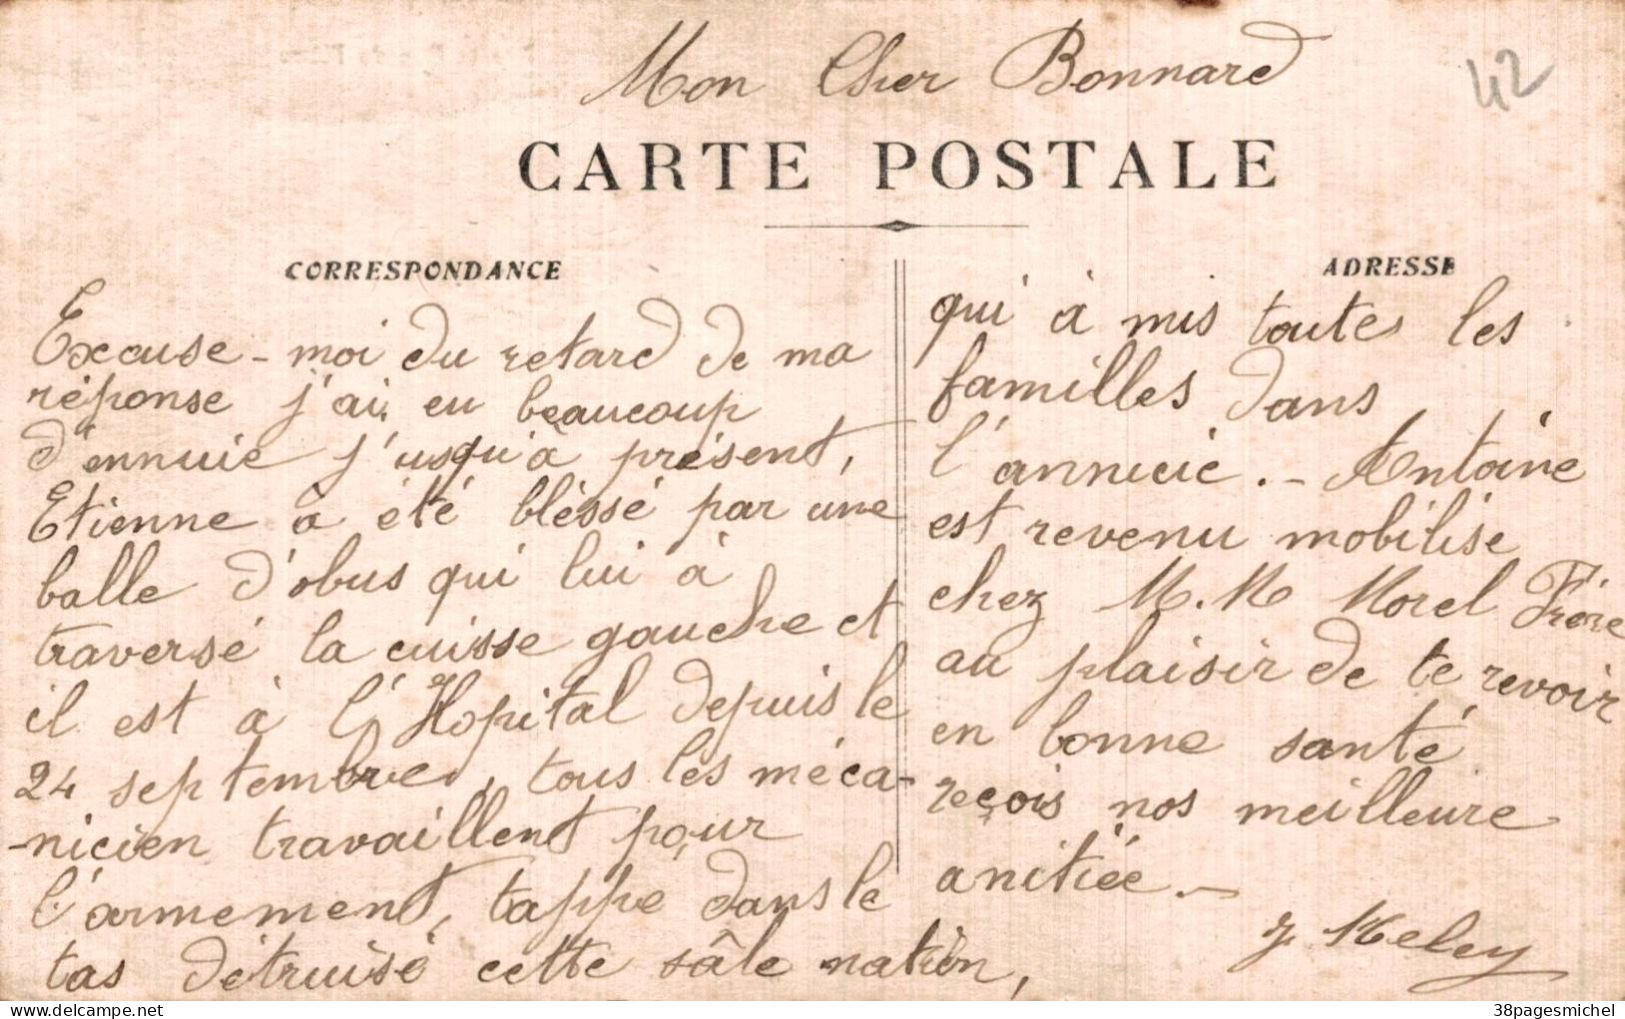 Mon Cher Bonnard
42
CARTE POSTALE
CORRESPONDANCE
Excuse-moi du retard de ma
réponse j'ai eu beaucoup
d'ennuie j'usqu'à présent,
Etienne à été bléssé par une
balle d'obus qui lui à
traversé la cuisse gauche et
il est à l'Hopital depuis le
24 septembre, tous les méca-
-nicien travaillent pour
l'armement, tappe dans le
tas détruisé cette sâle nation,
ADRESSE
qui à mis toutes les
familles dans
l'annuie. - Antoine
est revenu mobilise
chez M.M Morel Frère
au plaisir de te revoir
en bonne santé
reçois nos meilleure
anitiée. -
J. Meley
38pagesmichel